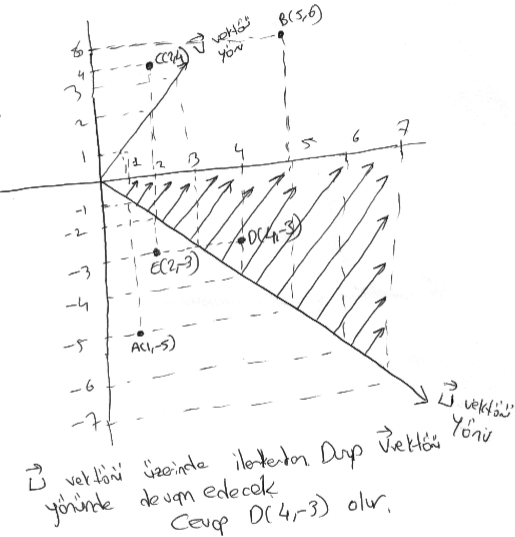 B(5,6)
V vektörü
yönü
6
C(2,4)
4
3
2
1
1 2 3 4 5 6 7
-1
-2
-3
-4
-5
-6
-7
D(4,-3)
E(2,-3)
A(1,-5)
U vektörü
Yönü
U vektörü üzerinde ilerlerken Durup V vektörü
yönünde devam edecek
Cevap D(4,-3) olur.